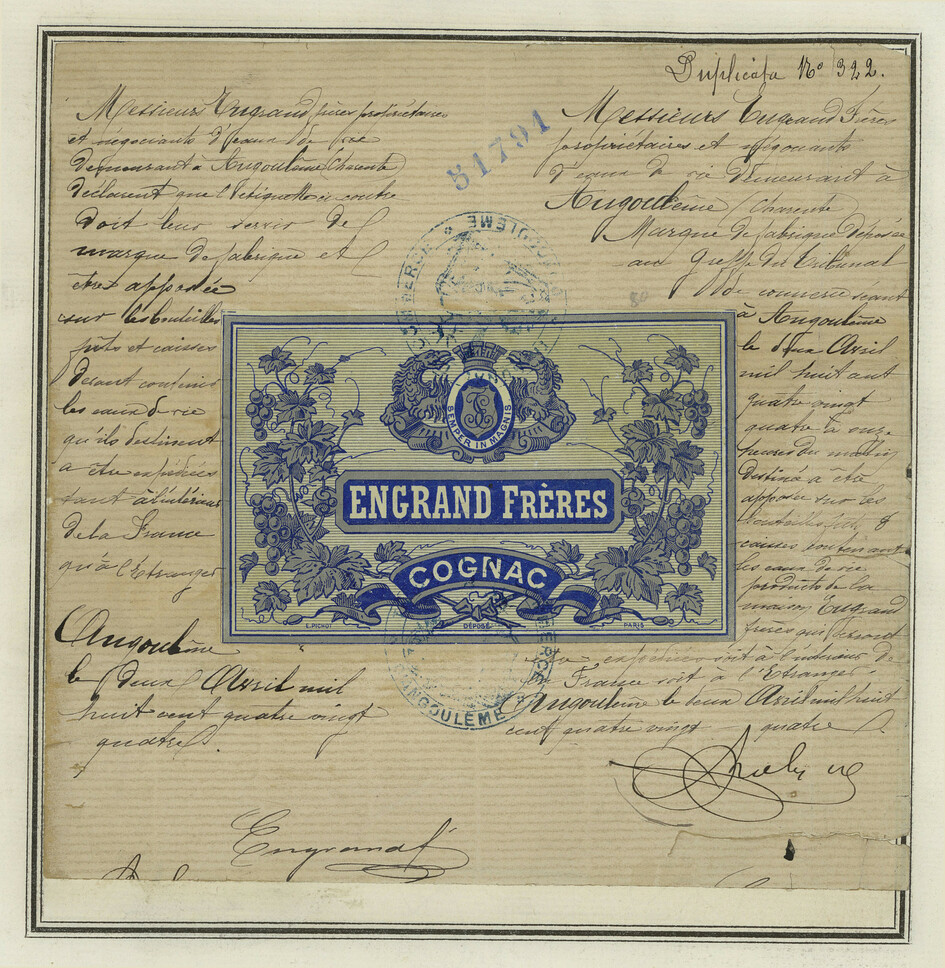 Duplicata No 322.
81791
Messieurs Engrand frères propriétaires
et négociants d'eaux de vie
demeurant à Angoulême (Charente)
déclarent que l'Etiquette ci contre
doit leur servir de
marque de fabrique et
être apposée
sur les bouteilles
fûts et caisses
devant contenir
les eaux de vie
qu'ils destinent
a être expédiées
tant à l'intérieur
de la France
qu'à l'Etranger
Angoulême
le deux Avril mil
huit cent quatre vingt
quatre.
Engrand
Messieurs Engrand Frères
propriétaires et négociants
d'eaux de vie demeurant à
Angoulême (Charente)
Marque de fabrique déposée
au Greffe du Tribunal
de commerce séant
à Angoulême
le deux Avril
mil huit cent
quatre vingt
quatre à onze
heures du matin
destiné à être
apposée sur les
bouteilles fûts &
caisses contenant
les eaux de vie
produits de la
maison Engrand
frères qui seront
expédiées soit à l'intérieur de
France soit à l'Etranger
Angoulême le deux Avril mil huit
cent quatre vingt quatre
SEMPER IN MAGNIS
ENGRAND FRÈRES
COGNAC
E. PICHOT
DÉPOSÉ
PARIS
COMMERCE
ANGOULÊME
COMMERCE
D'ANGOULÊME